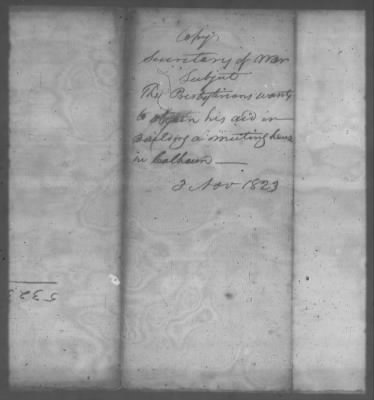 Copy
Secretary of War
Subject
The Presbyterians wants
to obtain his aid in
building a meeting house
in Calhoun —
3 Nov 1823